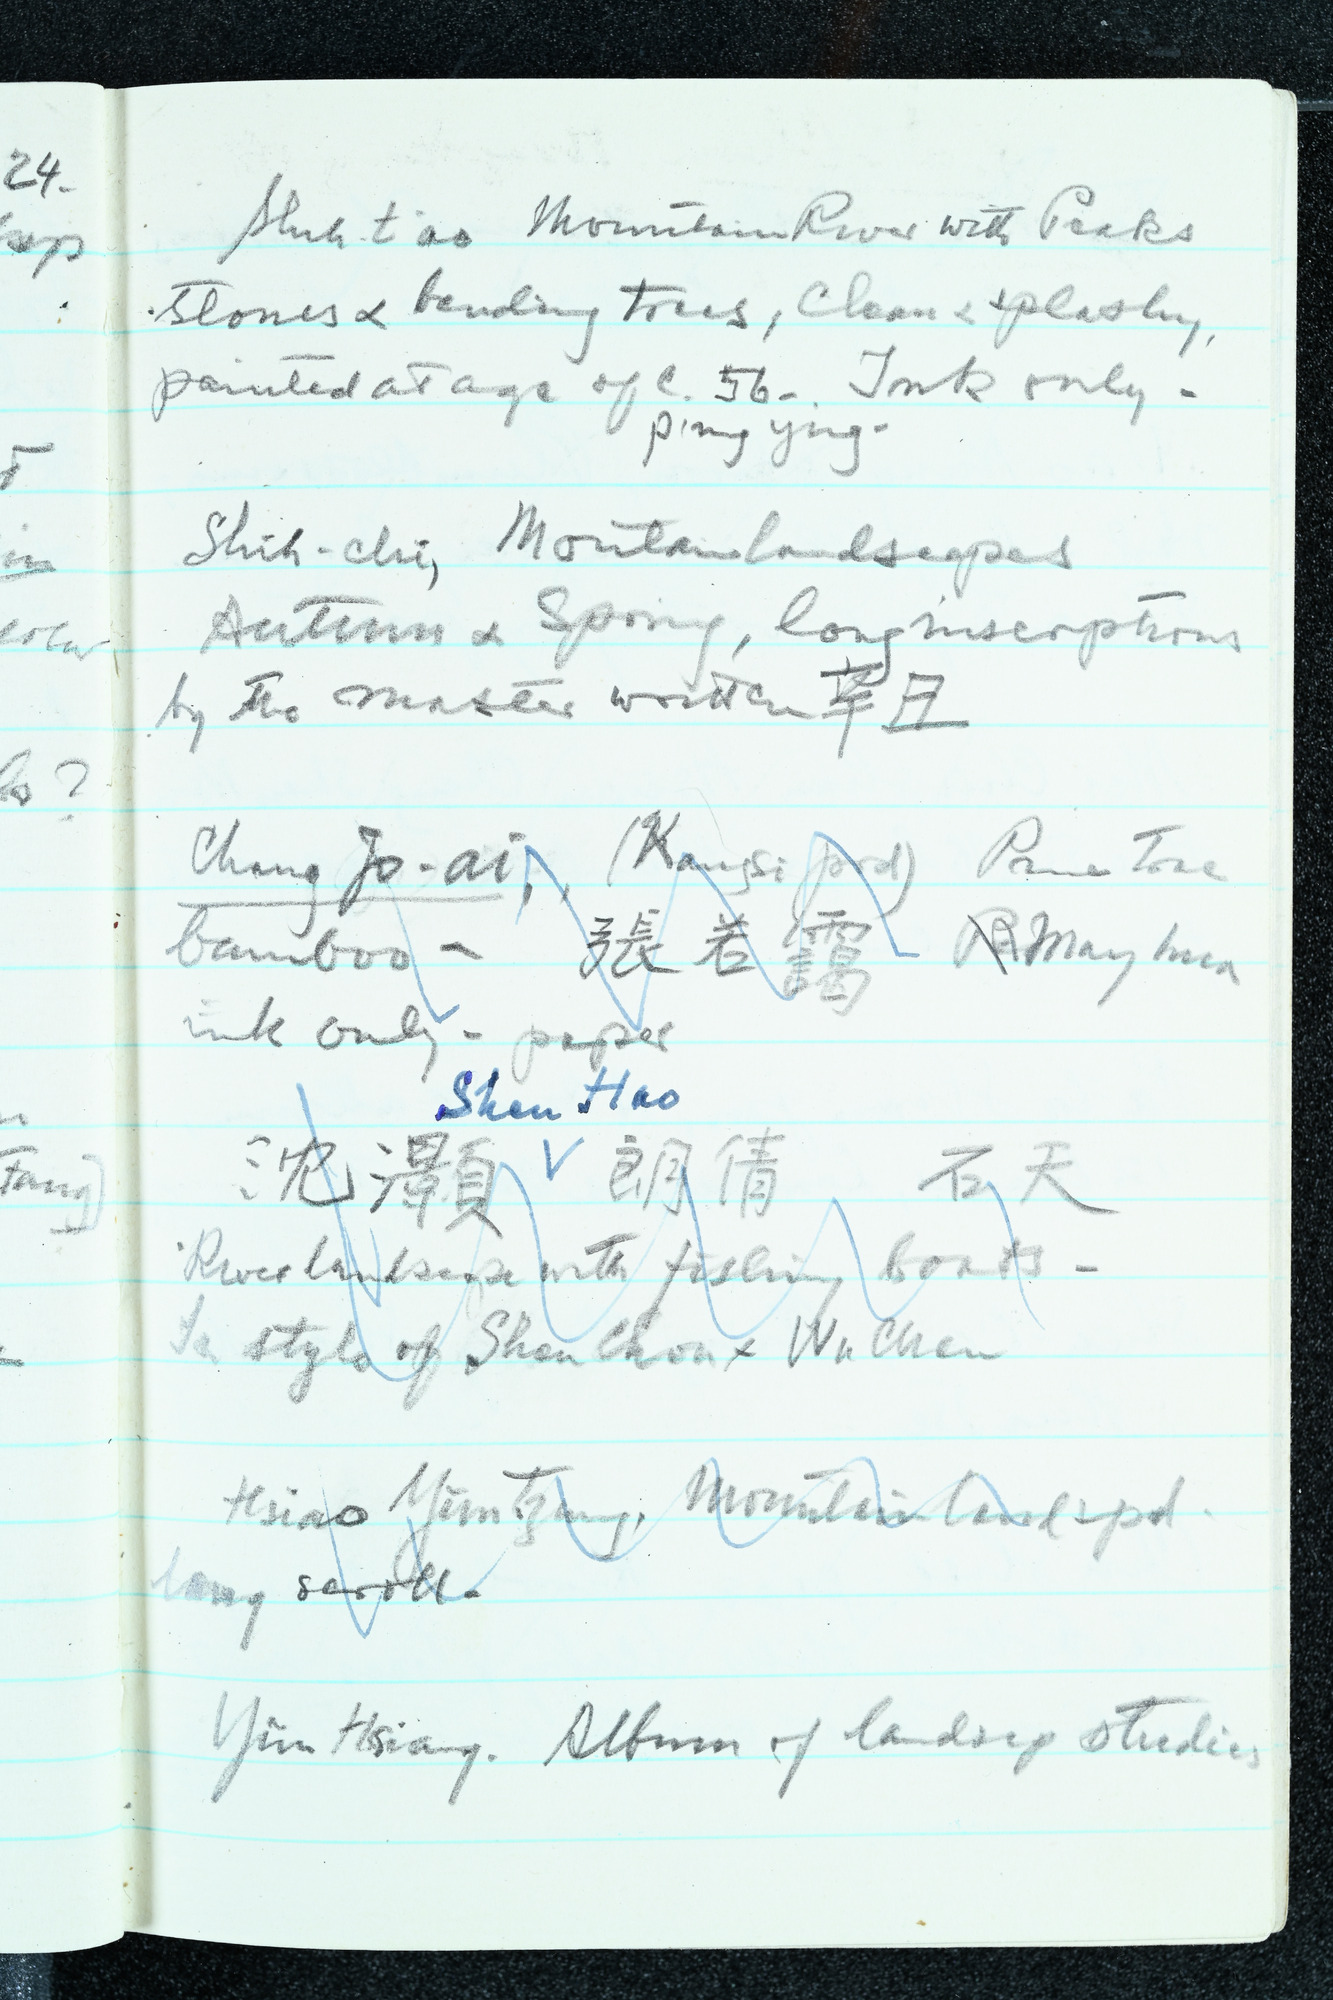 24.
Shih-t'ao Mountain River with Peaks
stones & bending trees, Clean & splashy,
painted at age of c. 56-. Ink only -
ping ying-
Shih-chi, Montain landscapes
Autumn & Spring, long inscriptions
by the master written 辛丑
Chang Jo-ai, (Kangsi prd) Pine tree
bamboo - 張若靄 & May hua
ink only - paper
Shen Hao
沈灝 朗倩 石天
River landscape with fishing boats -
In style of Shen Chou & Wu Chen
Hsiao Yün Tsung, Mountain landspd.
long scroll.
Yün Hsiang. Album of landscp studies